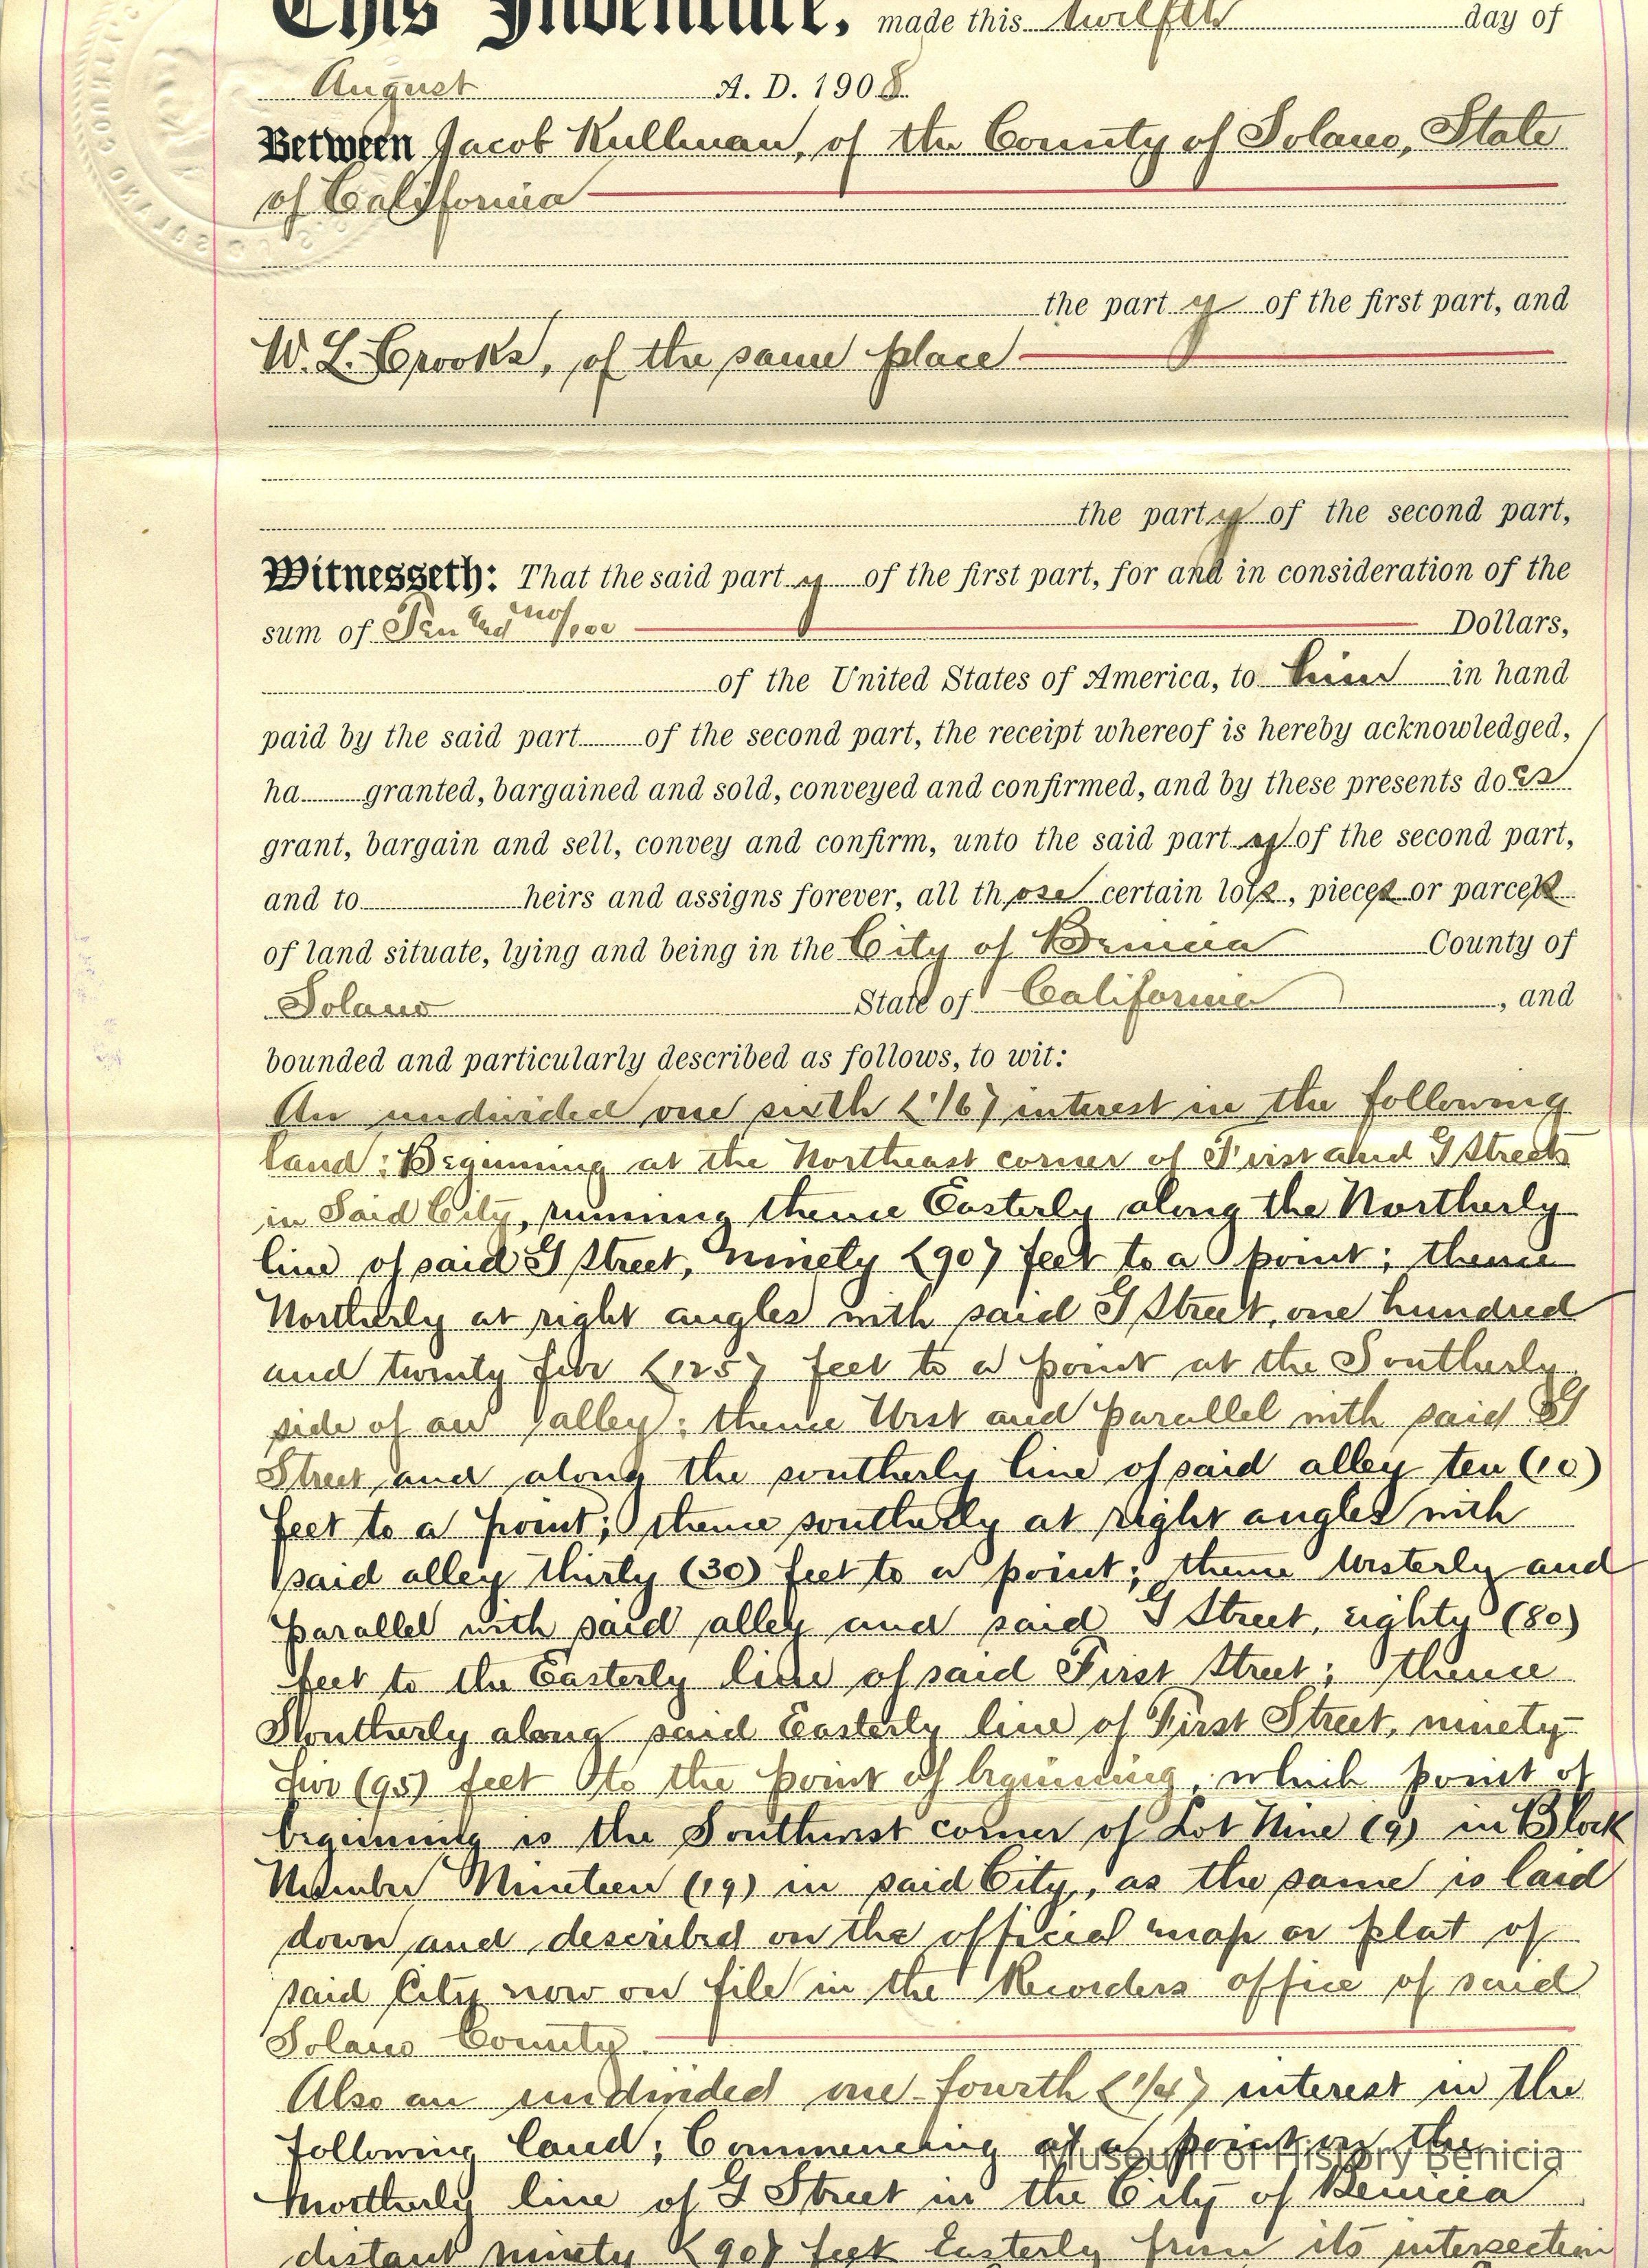 This Indenture, made this twelfth day of
August A. D. 1908
Between Jacob Kullman, of the County of Solano, State
of California
the party of the first part, and
W. L. Crooks, of the same place
the party of the second part,
Witnesseth: That the said party of the first part, for and in consideration of the
sum of Ten and no/100 Dollars,
of the United States of America, to him in hand
paid by the said part of the second part, the receipt whereof is hereby acknowledged,
ha granted, bargained and sold, conveyed and confirmed, and by these presents does
grant, bargain and sell, convey and confirm, unto the said party of the second part,
and to heirs and assigns forever, all those certain lots, pieces or parcels
of land situate, lying and being in the City of Benicia County of
Solano State of California, and
bounded and particularly described as follows, to wit:
An undivided one sixth (1/6) interest in the following
land: Beginning at the Northeast corner of First and G Streets
in Said City, running thence Easterly along the Northerly
line of said G Street, ninety (90) feet to a point; thence
Northerly at right angles with said G Street, one hundred
and twenty five (125) feet to a point at the Southerly
side of an alley; thence West and parallel with said G
Street and along the southerly line of said alley ten (10)
feet to a point; thence southerly at right angles with
said alley thirty (30) feet to a point; thence Westerly and
parallel with said alley and said G Street, eighty (80)
feet to the Easterly line of said First Street; thence
Southerly along said Easterly line of First Street, ninety-
five (95) feet to the point of beginning, which point of
beginning is the Southwest corner of Lot Nine (9) in Block
Number Nineteen (19) in said City, as the same is laid
down and described on the official map or plat of
said City now on file in the Recorders office of said
Solano County.
Also an undivided one-fourth (1/4) interest in the
following land; Commencing at a point on the
Northerly line of G Street in the City of Benicia
distant ninety (90) feet Easterly from its intersection
Museum of History Benicia